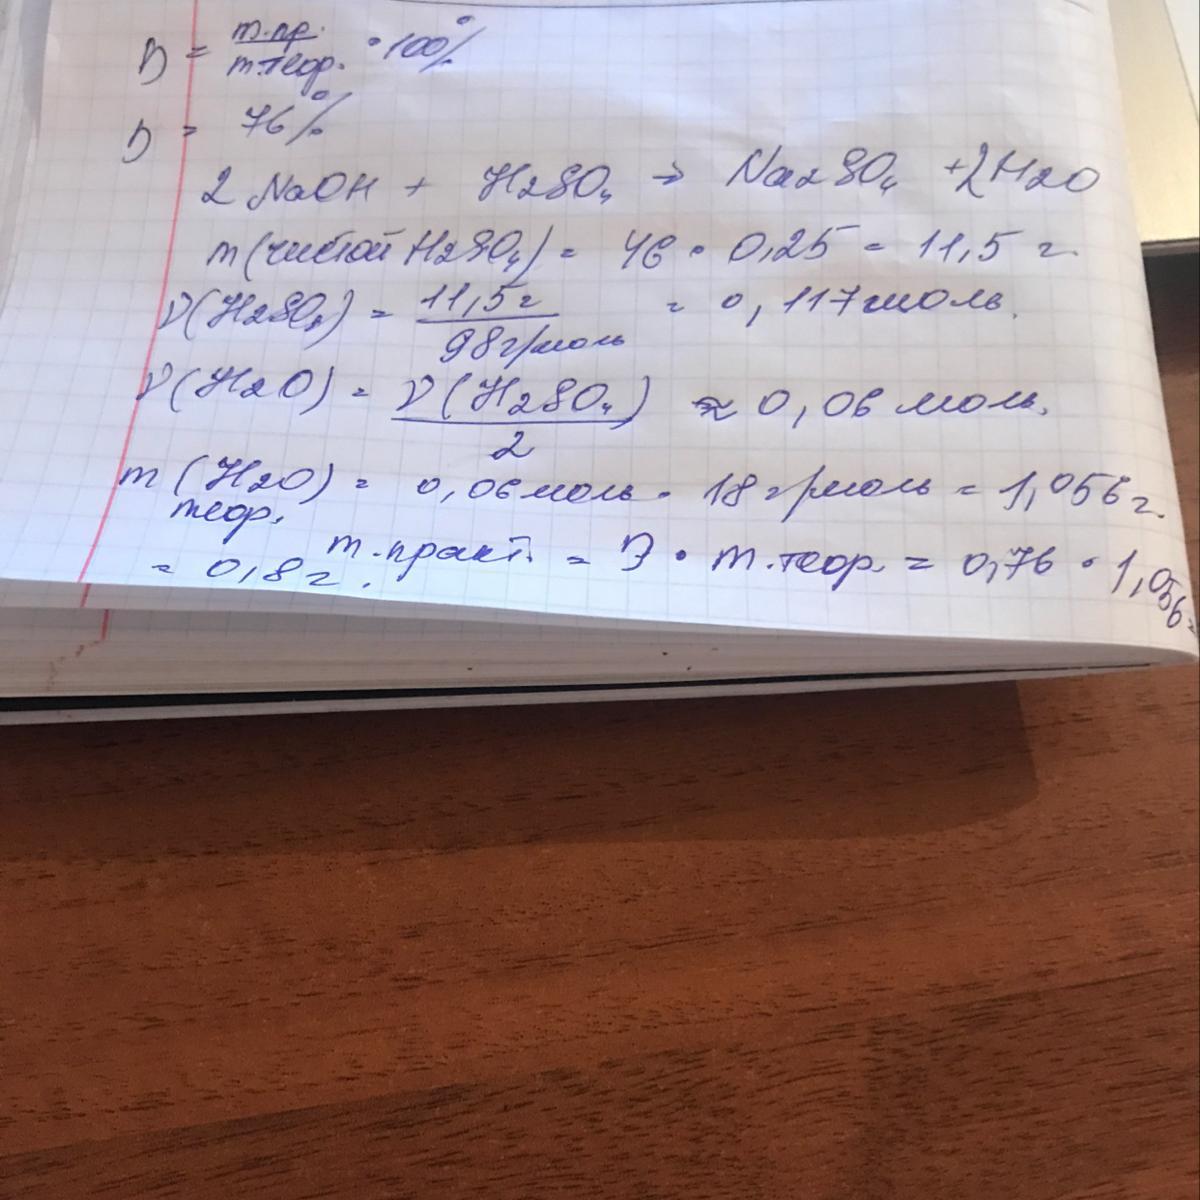 D = m.пр. / m.теор. · 100%
D = 76%
2 NaOH + H2SO4 → Na2SO4 + 2H2O
m (чистой H2SO4) = 46 · 0,25 = 11,5 г.
ν(H2SO4) = 11,5 г / 98 г/моль = 0,117 моль.
ν(H2O) = ν(H2SO4) / 2 ≈ 0,06 моль.
m (H2O) = 0,06 моль · 18 г/моль = 1,056 г.
теор.
m.практ. = D · m.теор. = 0,76 · 1,056 =
= 0,8 г.